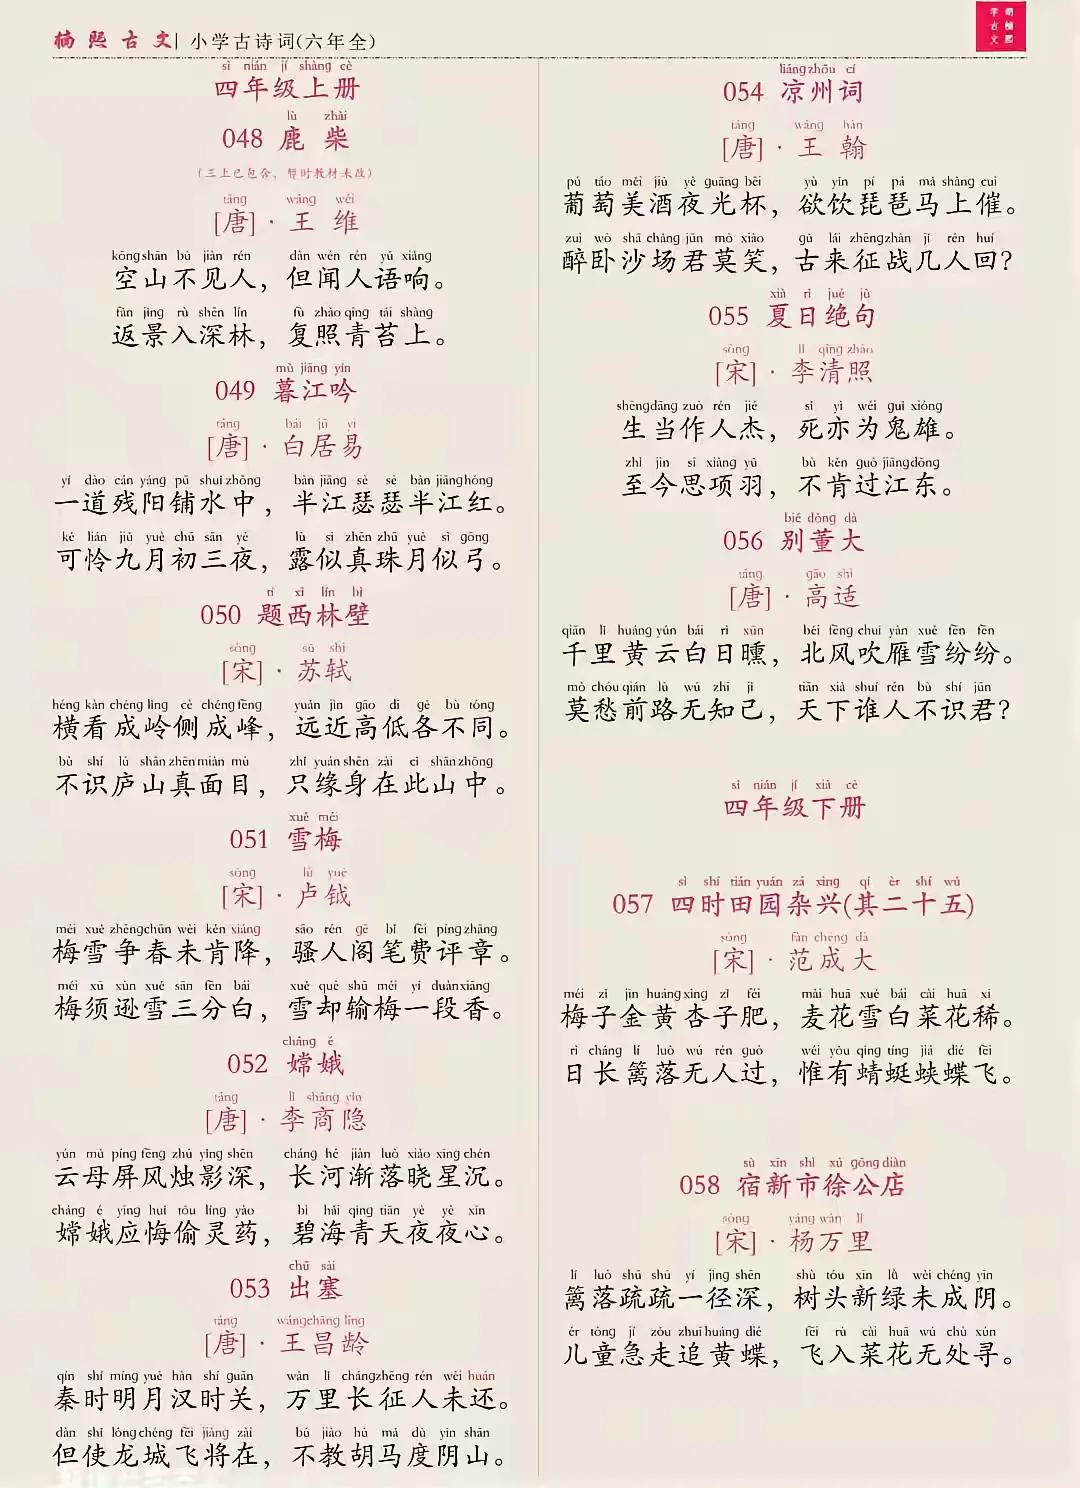 楠熙古文| 小学古诗词(六年全)
胡楠熙
学古文
sì nián jí shàng cè
四年级上册
lù zhài
048 鹿柴
(三上已包含，暂时教材未改)
táng wáng wéi
[唐]·王维
kōng shān bú jiàn rén dàn wén rén yǔ xiǎng
空山不见人，但闻人语响。
fǎn jǐng rù shēn lín fù zhào qīng tái shàng
返景入深林，复照青苔上。
mù jiāng yín
049 暮江吟
táng bái jū yì
[唐]·白居易
yí dào cán yáng pū shuǐ zhōng bàn jiāng sè sè bàn jiāng hóng
一道残阳铺水中，半江瑟瑟半江红。
kě lián jiǔ yuè chū sān yè lù sì zhēn zhū yuè sì gōng
可怜九月初三夜，露似真珠月似弓。
tí xī lín bì
050 题西林壁
sòng sū shì
[宋]·苏轼
héng kàn chéng lǐng cè chéng fēng yuǎn jìn gāo dī gè bù tóng
横看成岭侧成峰，远近高低各不同。
bù shí lú shān zhēn miàn mù zhǐ yuán shēn zài cǐ shān zhōng
不识庐山真面目，只缘身在此山中。
xuě méi
051 雪梅
sòng lú yuè
[宋]·卢钺
méi xuě zhēng chūn wèi kěn xiáng sāo rén gē bǐ fèi píng zhāng
梅雪争春未肯降，骚人阁笔费评章。
méi xū xùn xuě sān fēn bái xuě què shū méi yí duàn xiāng
梅须逊雪三分白，雪却输梅一段香。
cháng é
052 嫦娥
táng lǐ shāng yǐn
[唐]·李商隐
yún mǔ píng fēng zhú yǐng shēn cháng hé jiàn luò xiǎo xīng chén
云母屏风烛影深，长河渐落晓星沉。
cháng é yīng huǐ tōu líng yào bì hǎi qīng tiān yè yè xīn
嫦娥应悔偷灵药，碧海青天夜夜心。
chū sài
053 出塞
táng wáng chāng líng
[唐]·王昌龄
qín shí míng yuè hàn shí guān wàn lǐ cháng zhēng rén wèi huán
秦时明月汉时关，万里长征人未还。
dàn shǐ lóng chéng fēi jiàng zài bú jiào hú mǎ dù yīn shān
但使龙城飞将在，不教胡马度阴山。
liáng zhōu cí
054 凉州词
táng wáng hàn
[唐]·王翰
pú táo měi jiǔ yè guāng bēi yù yǐn pí pá mǎ shàng cuī
葡萄美酒夜光杯，欲饮琵琶马上催。
zuì wò shā chǎng jūn mò xiào gǔ lái zhēng zhàn jǐ rén huí
醉卧沙场君莫笑，古来征战几人回?
xià rì jué jù
055 夏日绝句
sòng lǐ qīng zhào
[宋]·李清照
shēng dāng zuò rén jié sǐ yì wéi guǐ xióng
生当作人杰，死亦为鬼雄。
zhì jīn sī xiàng yǔ bù kěn guò jiāng dōng
至今思项羽，不肯过江东。
bié dǒng dà
056 别董大
táng gāo shì
[唐]·高适
qiān lǐ huáng yún bái rì xūn běi fēng chuī yàn xuě fēn fēn
千里黄云白日曛，北风吹雁雪纷纷。
mò chóu qián lù wú zhī jǐ tiān xià shuí rén bù shí jūn
莫愁前路无知己，天下谁人不识君?
sì nián jí xià cè
四年级下册
sì shí tián yuán zá xìng qí èr shí wǔ
057 四时田园杂兴(其二十五)
sòng fàn chéng dà
[宋]·范成大
méi zǐ jīn huáng xìng zǐ féi mài huā xuě bái cài huā xī
梅子金黄杏子肥，麦花雪白菜花稀。
rì cháng lí luò wú rén guò wéi yǒu qīng tíng jiá dié fēi
日长篱落无人过，惟有蜻蜓蛱蝶飞。
sù xīn shì xú gōng diàn
058 宿新市徐公店
sòng yáng wàn lǐ
[宋]·杨万里
lí luò shū shū yí jìng shēn shù tóu xīn lǜ wèi chéng yīn
篱落疏疏一径深，树头新绿未成阴。
ér tóng jí zǒu zhuī huáng dié fēi rù cài huā wú chù xún
儿童急走追黄蝶，飞入菜花无处寻。